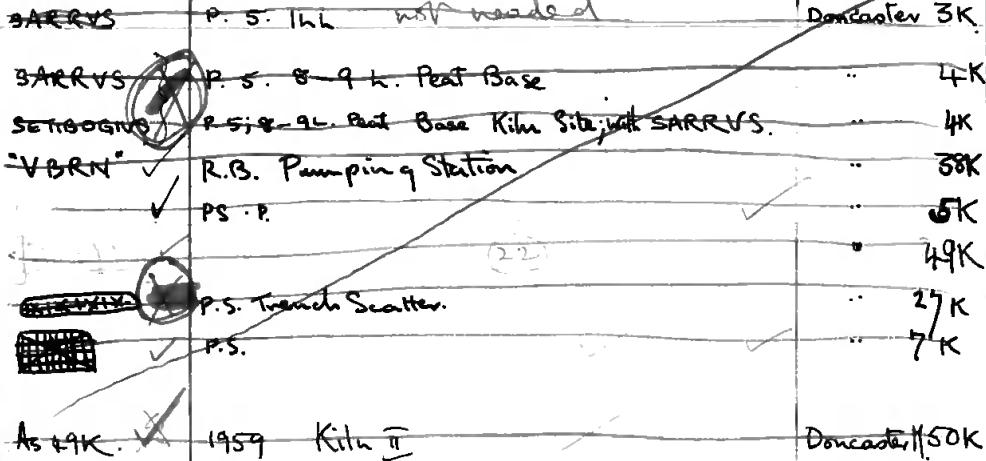 SARRVS P. 5. 1hh not needed Doncaster 3K
SARRVS P. 5. 8-9 L. Peat Base " 4K
P 5; 8-9L. Peat Base Kiln Site; with SARRVS. " 4K
"VBRN" ✓ R.B. Pumping Station " 38K
✓ PS. P. ✓ " 5K
(22) " 49K
P.S. Trench Scatter. " 27K
✓ P.S. ✓ " 7K
As 49K. ✓ 1959 Kiln II Doncaster 50K